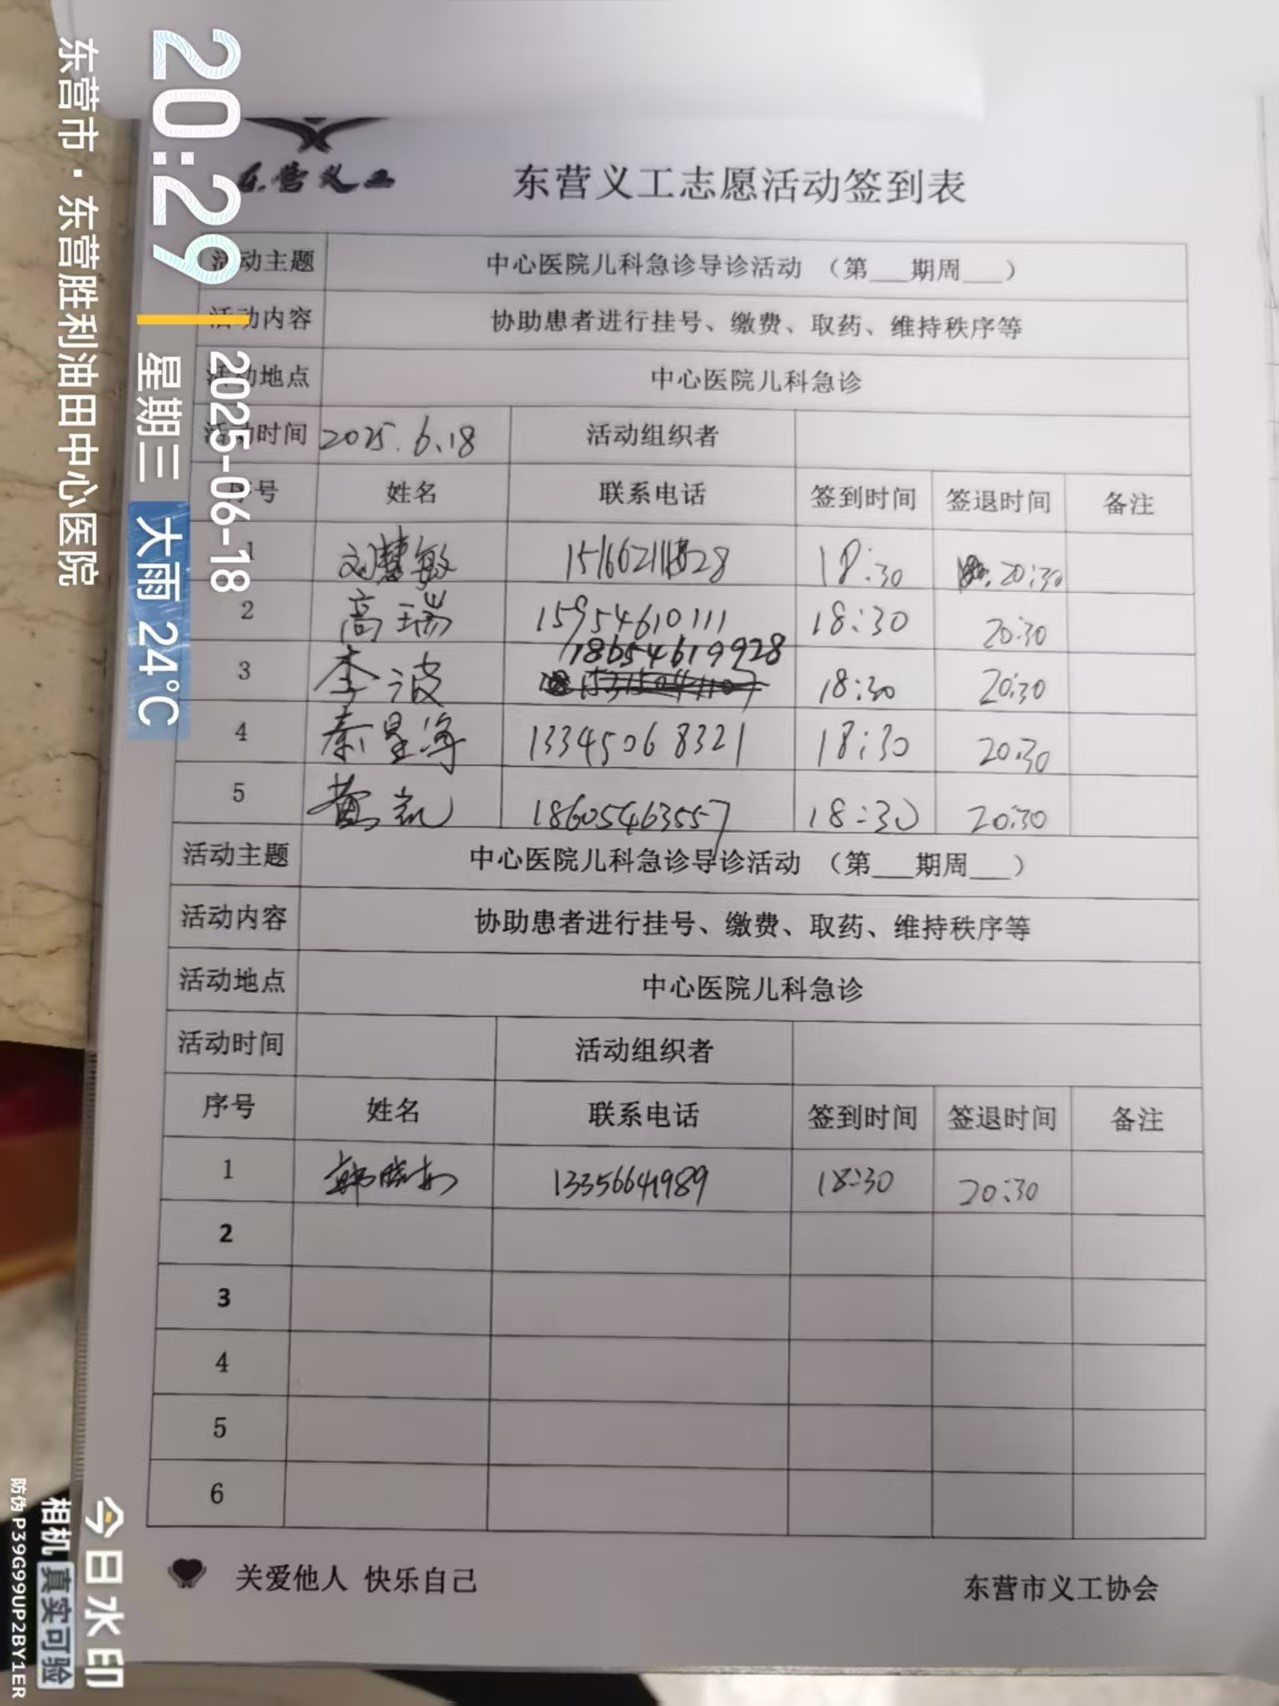 东营义工
东营义工志愿活动签到表
活动主题 中心医院儿科急诊导诊活动 （第___期周___）
活动内容 协助患者进行挂号、缴费、取药、维持秩序等
活动地点 中心医院儿科急诊
活动时间 2025.6.18 活动组织者
序号 姓名 联系电话 签到时间 签退时间 备注
1 刘慧敏 18:30 20:30
2 高瑞 15954610111 18:30 20:30
3 李波 18654619928 18:30 20:30
4 秦星海 13345068321 18:30 20:30
5 黄凯 18605463557 18:30 20:30
活动主题 中心医院儿科急诊导诊活动 （第___期周___）
活动内容 协助患者进行挂号、缴费、取药、维持秩序等
活动地点 中心医院儿科急诊
活动时间 活动组织者
序号 姓名 联系电话 签到时间 签退时间 备注
1 13356641989 18:30 20:30
2
3
4
5
6
关爱他人 快乐自己 东营市义工协会
20:29
2025-06-18
星期三 大雨 24℃
东营市·东营胜利油田中心医院
今日水印
相机 真实可验
防伪 P39G99UP2BY1ER